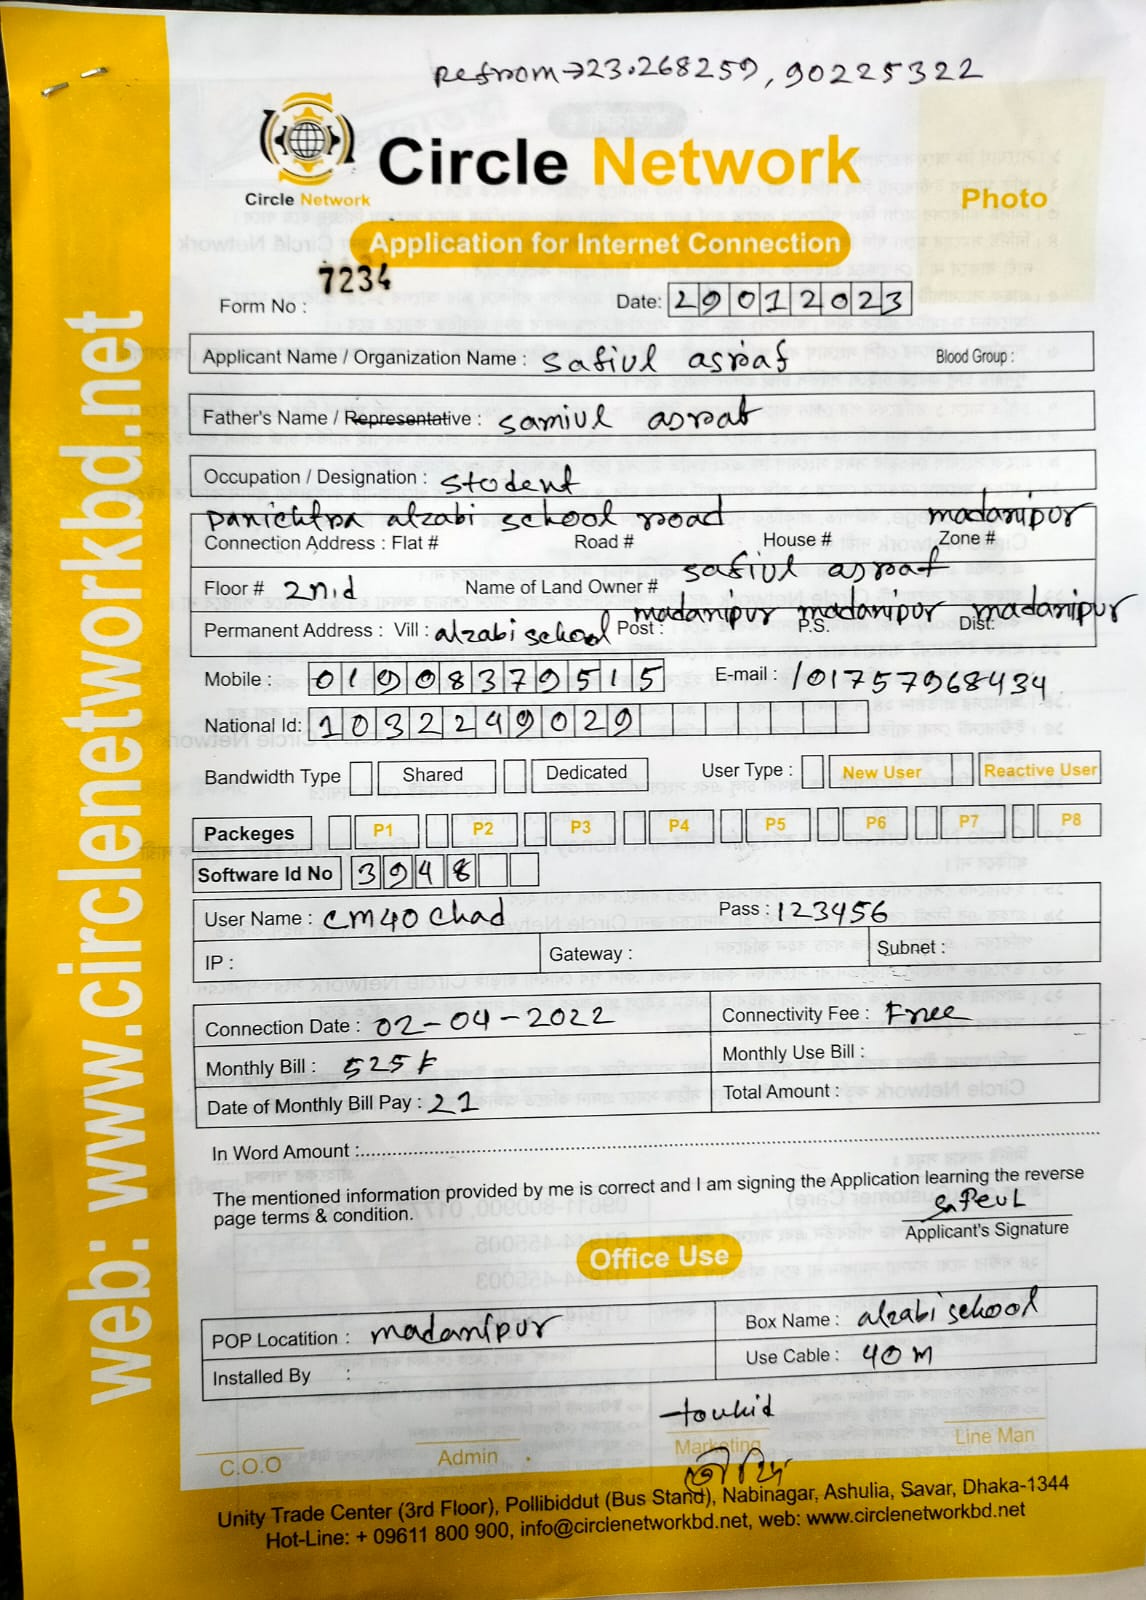 Refrom→23.268259, 90225322
Circle Network
Circle Network
Photo
Application for Internet Connection
7234
Form No :
Date: 29012023
Applicant Name / Organization Name : safiul asraf
Blood Group :
Father's Name / Representative : samiul asraf
Occupation / Designation : student
panichtra alzabi school road madanipur
Connection Address : Flat # Road # House # Zone #
Floor # 2nd Name of Land Owner # safiul asraf
Permanent Address : Vill : alzabi school Post : madanipur P.S. madanipur Dist: madanipur
Mobile : 01908379515 E-mail : /01757968434
National Id: 1032249029
Bandwidth Type Shared Dedicated User Type : New User Reactive User
Packeges P1 P2 P3 P4 P5 P6 P7 P8
Software Id No 3948
User Name : cm40chad Pass : 123456
IP : Gateway : Subnet :
Connection Date : 02-04-2022 Connectivity Fee : Free
Monthly Bill : 525 Monthly Use Bill :
Date of Monthly Bill Pay : 21 Total Amount :
In Word Amount :
The mentioned information provided by me is correct and I am signing the Application learning the reverse
page terms & condition.
safeul
Applicant's Signature
Office Use
POP Locatition : madanipur Box Name : alzabi school
Installed By : Use Cable : 40 m
touhid
C.O.O Admin Marketing Line Man
Unity Trade Center (3rd Floor), Pollibiddut (Bus Stand), Nabinagar, Ashulia, Savar, Dhaka-1344
Hot-Line: + 09611 800 900, info@circlenetworkbd.net, web: www.circlenetworkbd.net
web: www.circlenetworkbd.net